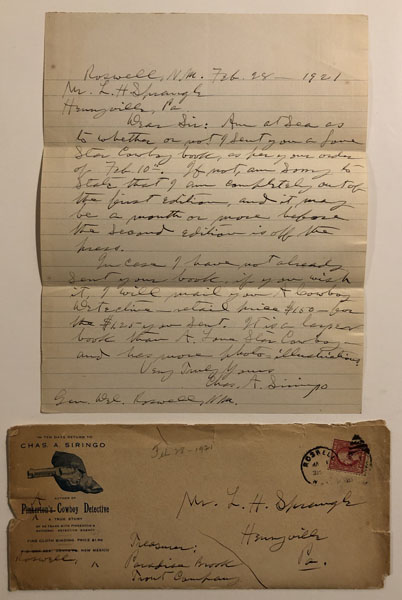 Roswell, N.M. Feb. 28 - 1921
Mr. L. H. Sprangle
Henryville, Pa
Dear Sir: Am at Sea as
to whether or not I sent you a Lone
Star Cowboy book, as per your order
of Feb 10th. If not, am sorry to
state that I am completely out of
the first edition, and it may
be a month or more before
the second edition is off the
press.
In case I have not already
sent you a book, if you wish
it, I will mail you A Cowboy
Detective - retail price $1.50 - for
the $1.25 you sent. It is a larger
book than A Lone Star Cowboy
and has more photo-illustrations
Very Truly Yours
Chas. A. Siringo
Gen. Del. Roswell, N.M.
IN TEN DAYS RETURN TO
CHAS. A. SIRINGO
AUTHOR OF
Pinkerton's Cowboy Detective
A TRUE STORY
FINE CLOTH BINDING, PRICE
NEW MEXICO
Roswell,
Feb 28 - 1921
ROSWELL
Mr. L. H. Sprangle
Henryville
Pa.
Treasurer,
Paradise Brook
Trout Company